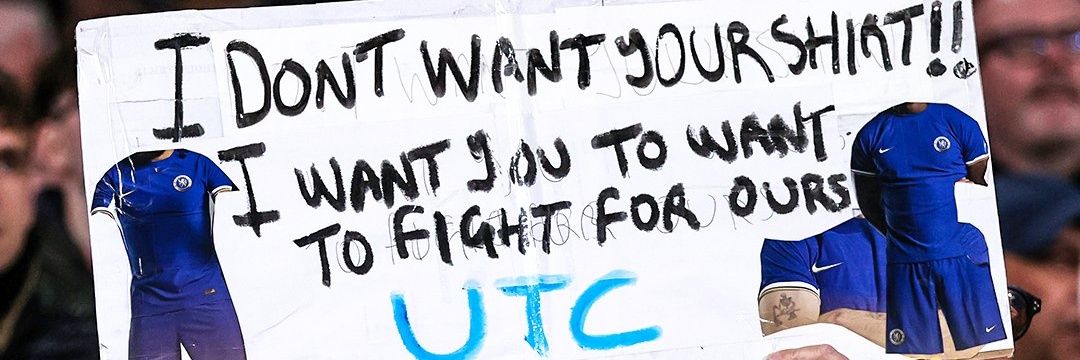 I DONT WANT YOUR SHIRT!!
I WANT YOU TO WANT
TO FIGHT FOR OURS
UTC